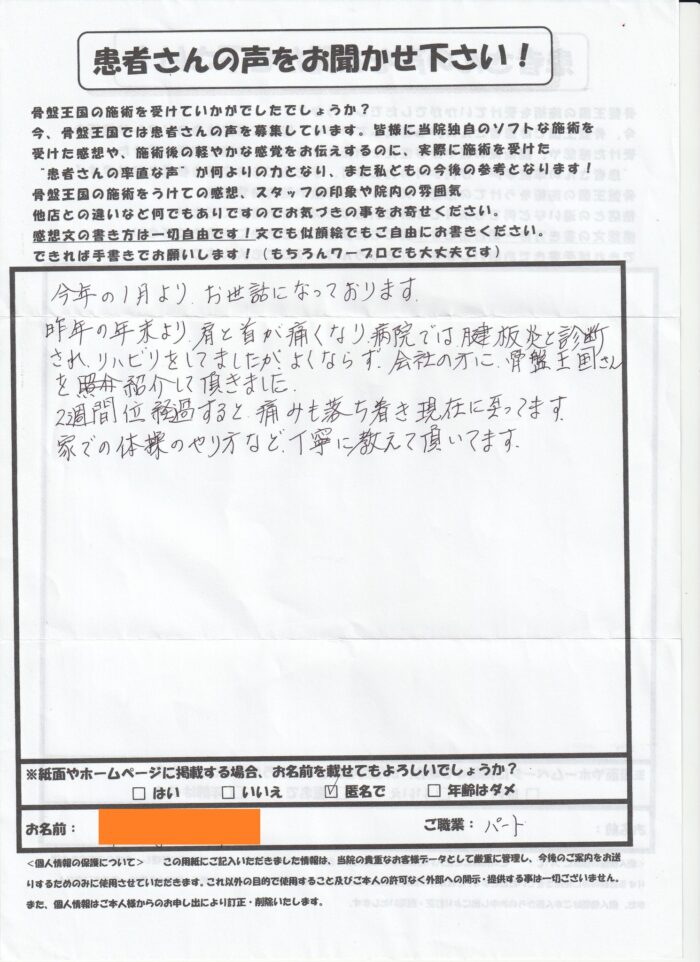 患者さんの声をお聞かせ下さい！
骨盤王国の施術を受けていかがでしたでしょうか？
今、骨盤王国では患者さんの声を募集しています。皆様に当院独自のソフトな施術を
受けた感想や、施術後の軽やかな感覚をお伝えするのに、実際に施術を受けた
"患者さんの率直な声"が何よりの力となり、また私どもの今後の参考となります！
骨盤王国の施術をうけての感想、スタッフの印象や院内の雰囲気
他店との違いなど何でもありですのでお気づきの事をお寄せください。
感想文の書き方は一切自由です！文でも似顔絵でもご自由にお書きください。
できれば手書きでお願いします！（もちろんワープロでも大丈夫です）
今年の1月より、お世話になっております。
昨年の年末より、肩と首が痛くなり、病院では腱板炎と診断
され、リハビリをしてましたが、よくならず、会社の方に、骨盤王国さん
を 紹介して頂きました。
2週間位経過すると、痛みも落ち着き現在に至ってます。
家での体操のやり方など、丁寧に教えて頂いてます。
※紙面やホームページに掲載する場合、お名前を載せてもよろしいでしょうか？
□ はい □ いいえ ☑ 匿名で □ 年齢はダメ
お名前： ご職業： パート
<個人情報の保護について> この用紙にご記入いただきました情報は、当院の貴重なお客様データとして厳重に管理し、今後のご案内をお送
りするためのみに使用させていただきます。これ以外の目的で使用すること及びご本人の許可なく外部への開示・提供する事は一切ございません。
また、個人情報はご本人様からのお申し出により訂正・削除いたします。